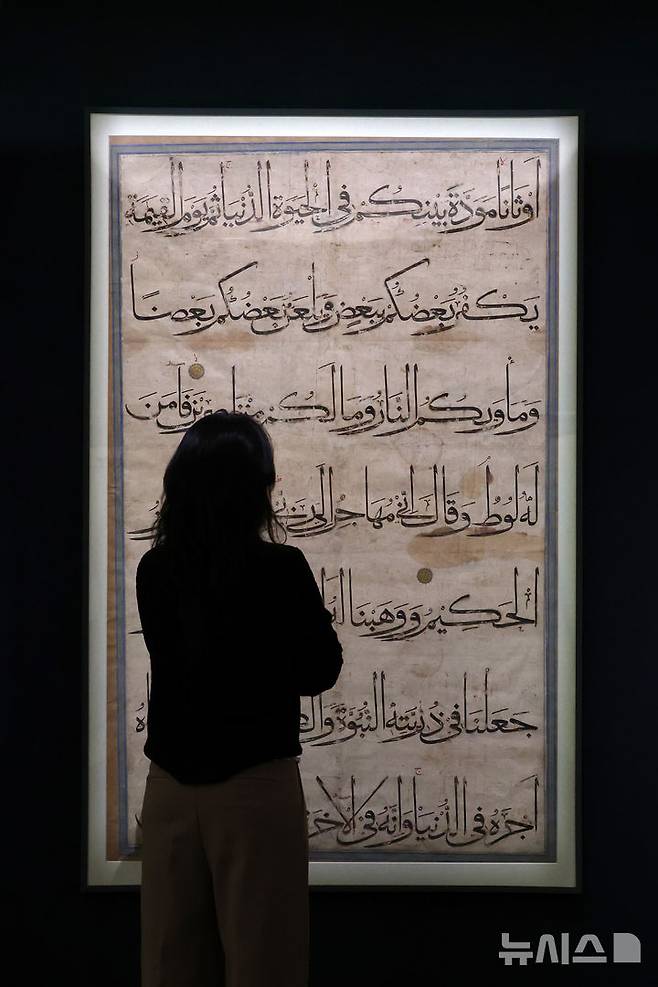 اَوْثَانًا مَوَدَّةَ بَيْنِكُمْ فِي الْحَيٰوةِ الدُّنْيَا ثُمَّ يَوْمَ الْقِيٰمَةِ
يَكْفُرُ بَعْضُكُمْ بِبَعْضٍ وَيَلْعَنُ بَعْضُكُمْ بَعْضًا
وَمَأْوٰيكُمُ النَّارُ وَمَا لَكُمْ مِنْ نَاصِرِينَ فَآمَنَ
لَهُ لُوطٌ وَقَالَ اِنِّي مُهَاجِرٌ اِلَى
الْحَكِيمُ وَوَهَبْنَا
جَعَلْنَا فِي ذُرِّيَّتِهِ النُّبُوَّةَ
اَجْرَهُ فِي الدُّنْيَا وَاِنَّهُ فِي
뉴시스